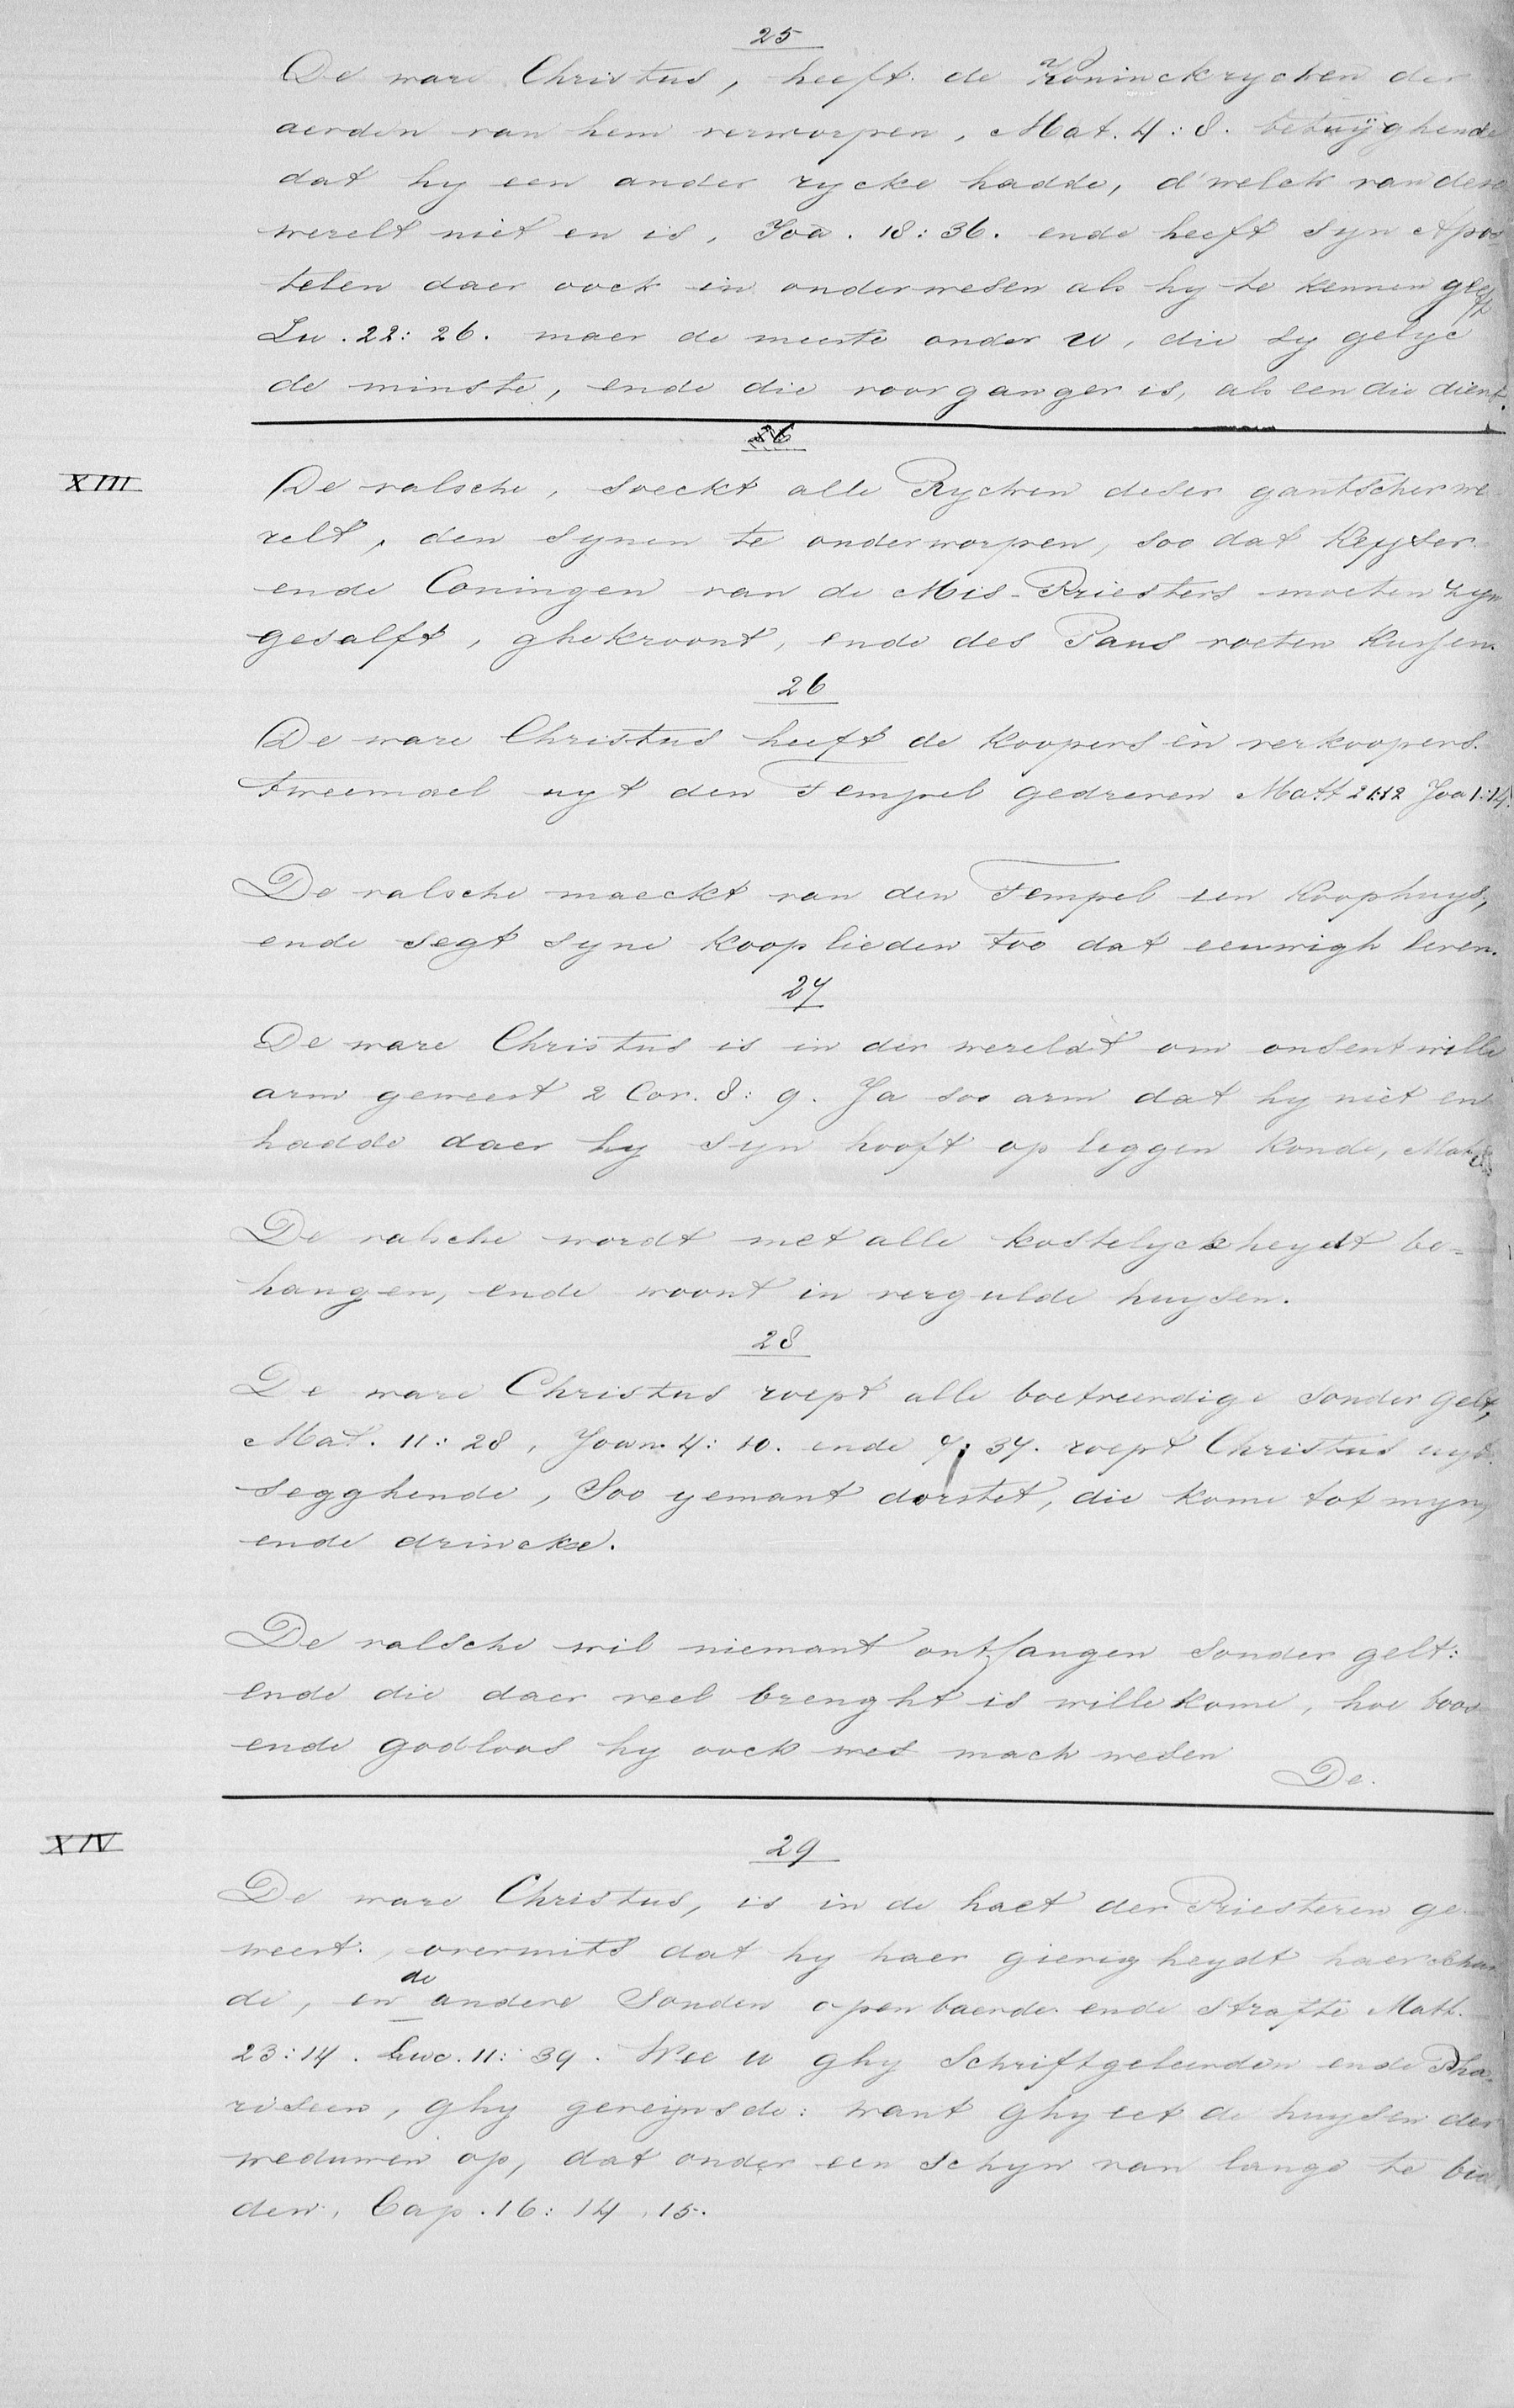 25
De ware Christus, heeft de Koninckrycken der
aerden van hem verworpen, Mat. 4:8. betuÿghende
dat hy een ander rycke hadde, d'welck van dese
werelt niet en is, Joa. 18:36. ende heeft syn Apos
telen daer oock in onderwesen als hy te kennen geeft
Lu. 22:26. maer de meeste onder u, die sy gelyc
de minste, ende die voorganger is, als een die dient.
26
XIII De valsche, soeckt alle Rycken deser gantscher we
relt, den synen te onderworpen, soo dat Keyser
ende Coningen van de Mis-Priesters moeten zyn
gesalft, ghekroont, ende des Paus voeten kussen.
26
De ware Christus heeft de Koopers en verkoopers
tweemael uyt den Tempel gedreven Matt 21:12 Joa 1:14.
De valsche maeckt van den Tempel een Koophuys,
ende segt syne Kooplieden too dat eeuwigh leven.
27
De ware Christus is in der wereldt om onsent wille
arm geweest 2 Cor. 8:9. Ja soo arm dat hy niet en
hadde daer hy syn hooft op leggen konde, Mat 8
De valsche wordt met alle kostelyckheydt be=
hangen, ende woont in vergulde huysen.
28
De ware Christus roept alle boetveerdige sonder gelt,
Mat. 11:28, Joan. 4:10. ende 7:37. roept Christus uyt
segghende, Soo yemant dorstet, die kome tot myn,
ende drincke.
De valsche wil niemant ontfangen sonder gelt:
ende die daer veel brenght is willekome, hoe boos
ende godloos hy oock wes mach wesen
De.
XIV 29
De ware Christus, is in de haet der Priesteren ge
weest, overmits dat hy haer gierigheydt haer schan
de, en de andere Sonden openbaerde ende strafte Matt.
23:14. Luc. 11:39. Wee u ghy Schriftgeleerden ende Pha
riseen, ghy geveynsde: want ghy eet de huysen der
weduwen op, dat onder een schyn van lange te bid
den, Cap. 16:14,15.